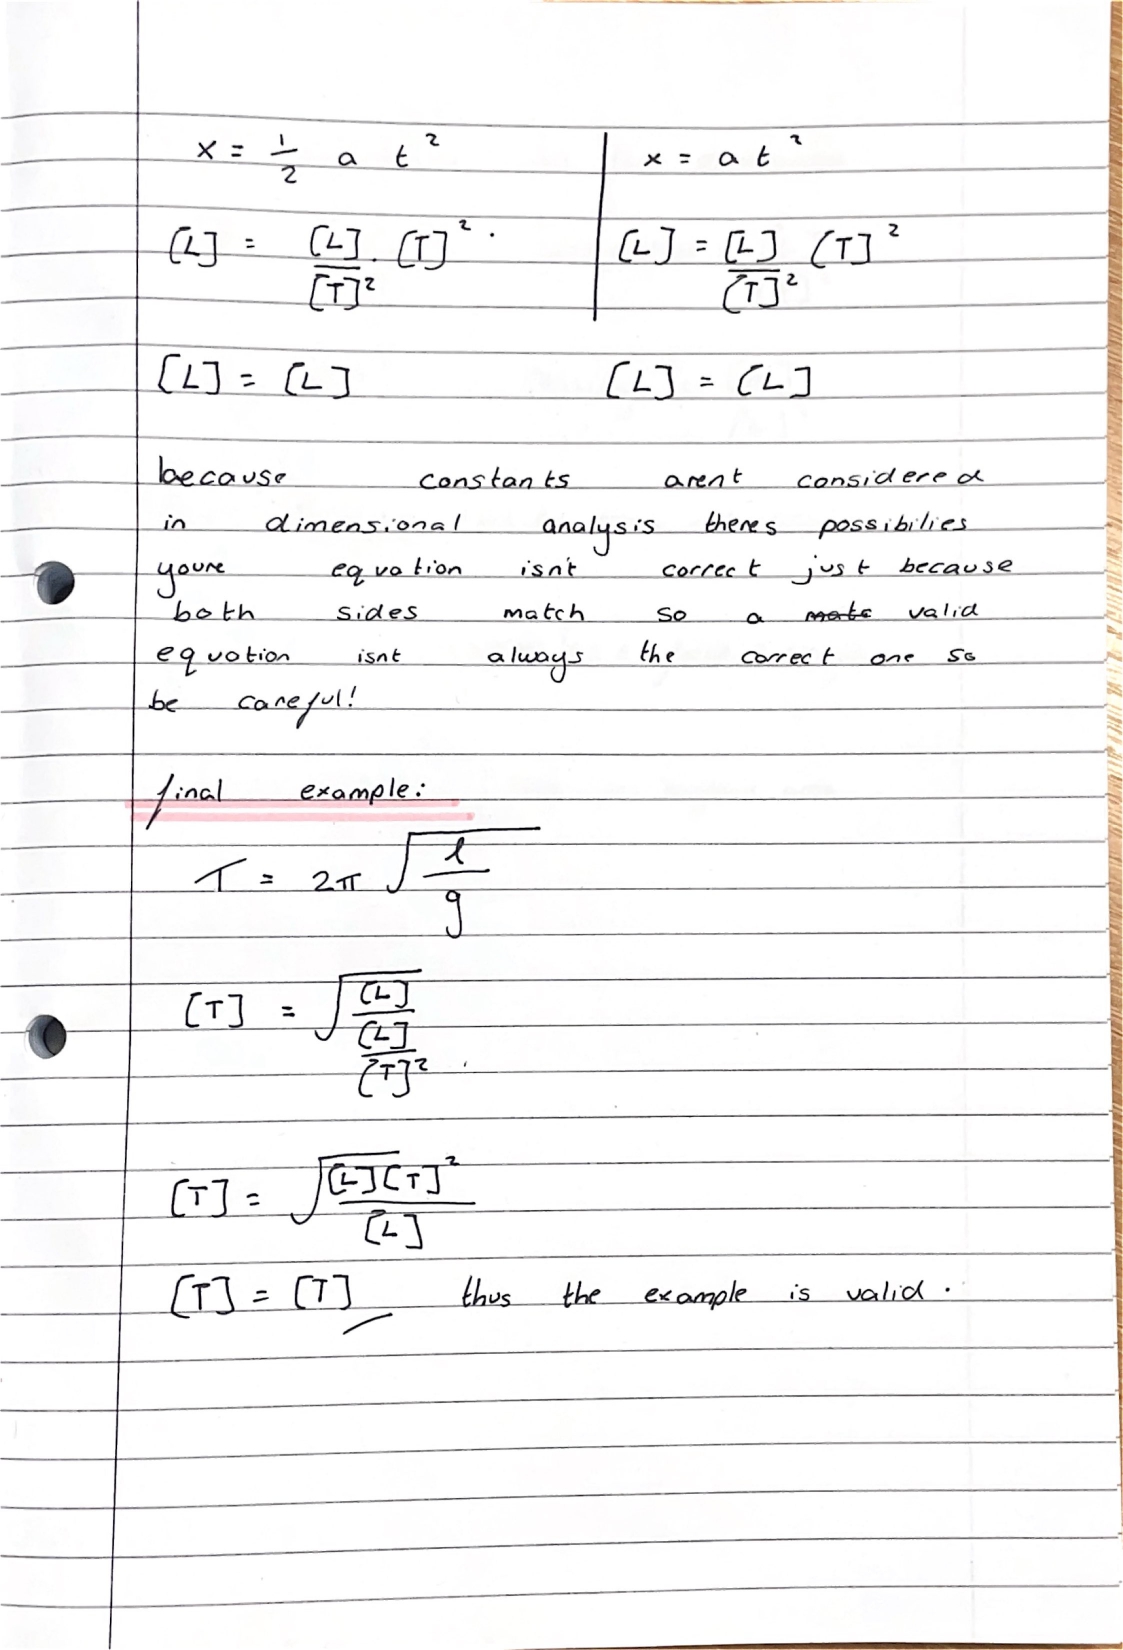 x = 1/2 a t² | x = a t²
[L] = [L]/[T]² . [T]² . | [L] = [L]/[T]² [T]²
[L] = [L] [L] = [L]
because constants arent considered
in dimensional analysis theres possibilies
youre equation isn't correct just because
both sides match so a valid
equation isnt always the correct one so
be careful!
final example:
T = 2π √(l/g)
[T] = √([L]/([L]/[T]²))
[T] = √([L][T]²/[L])
[T] = [T] thus the example is valid.